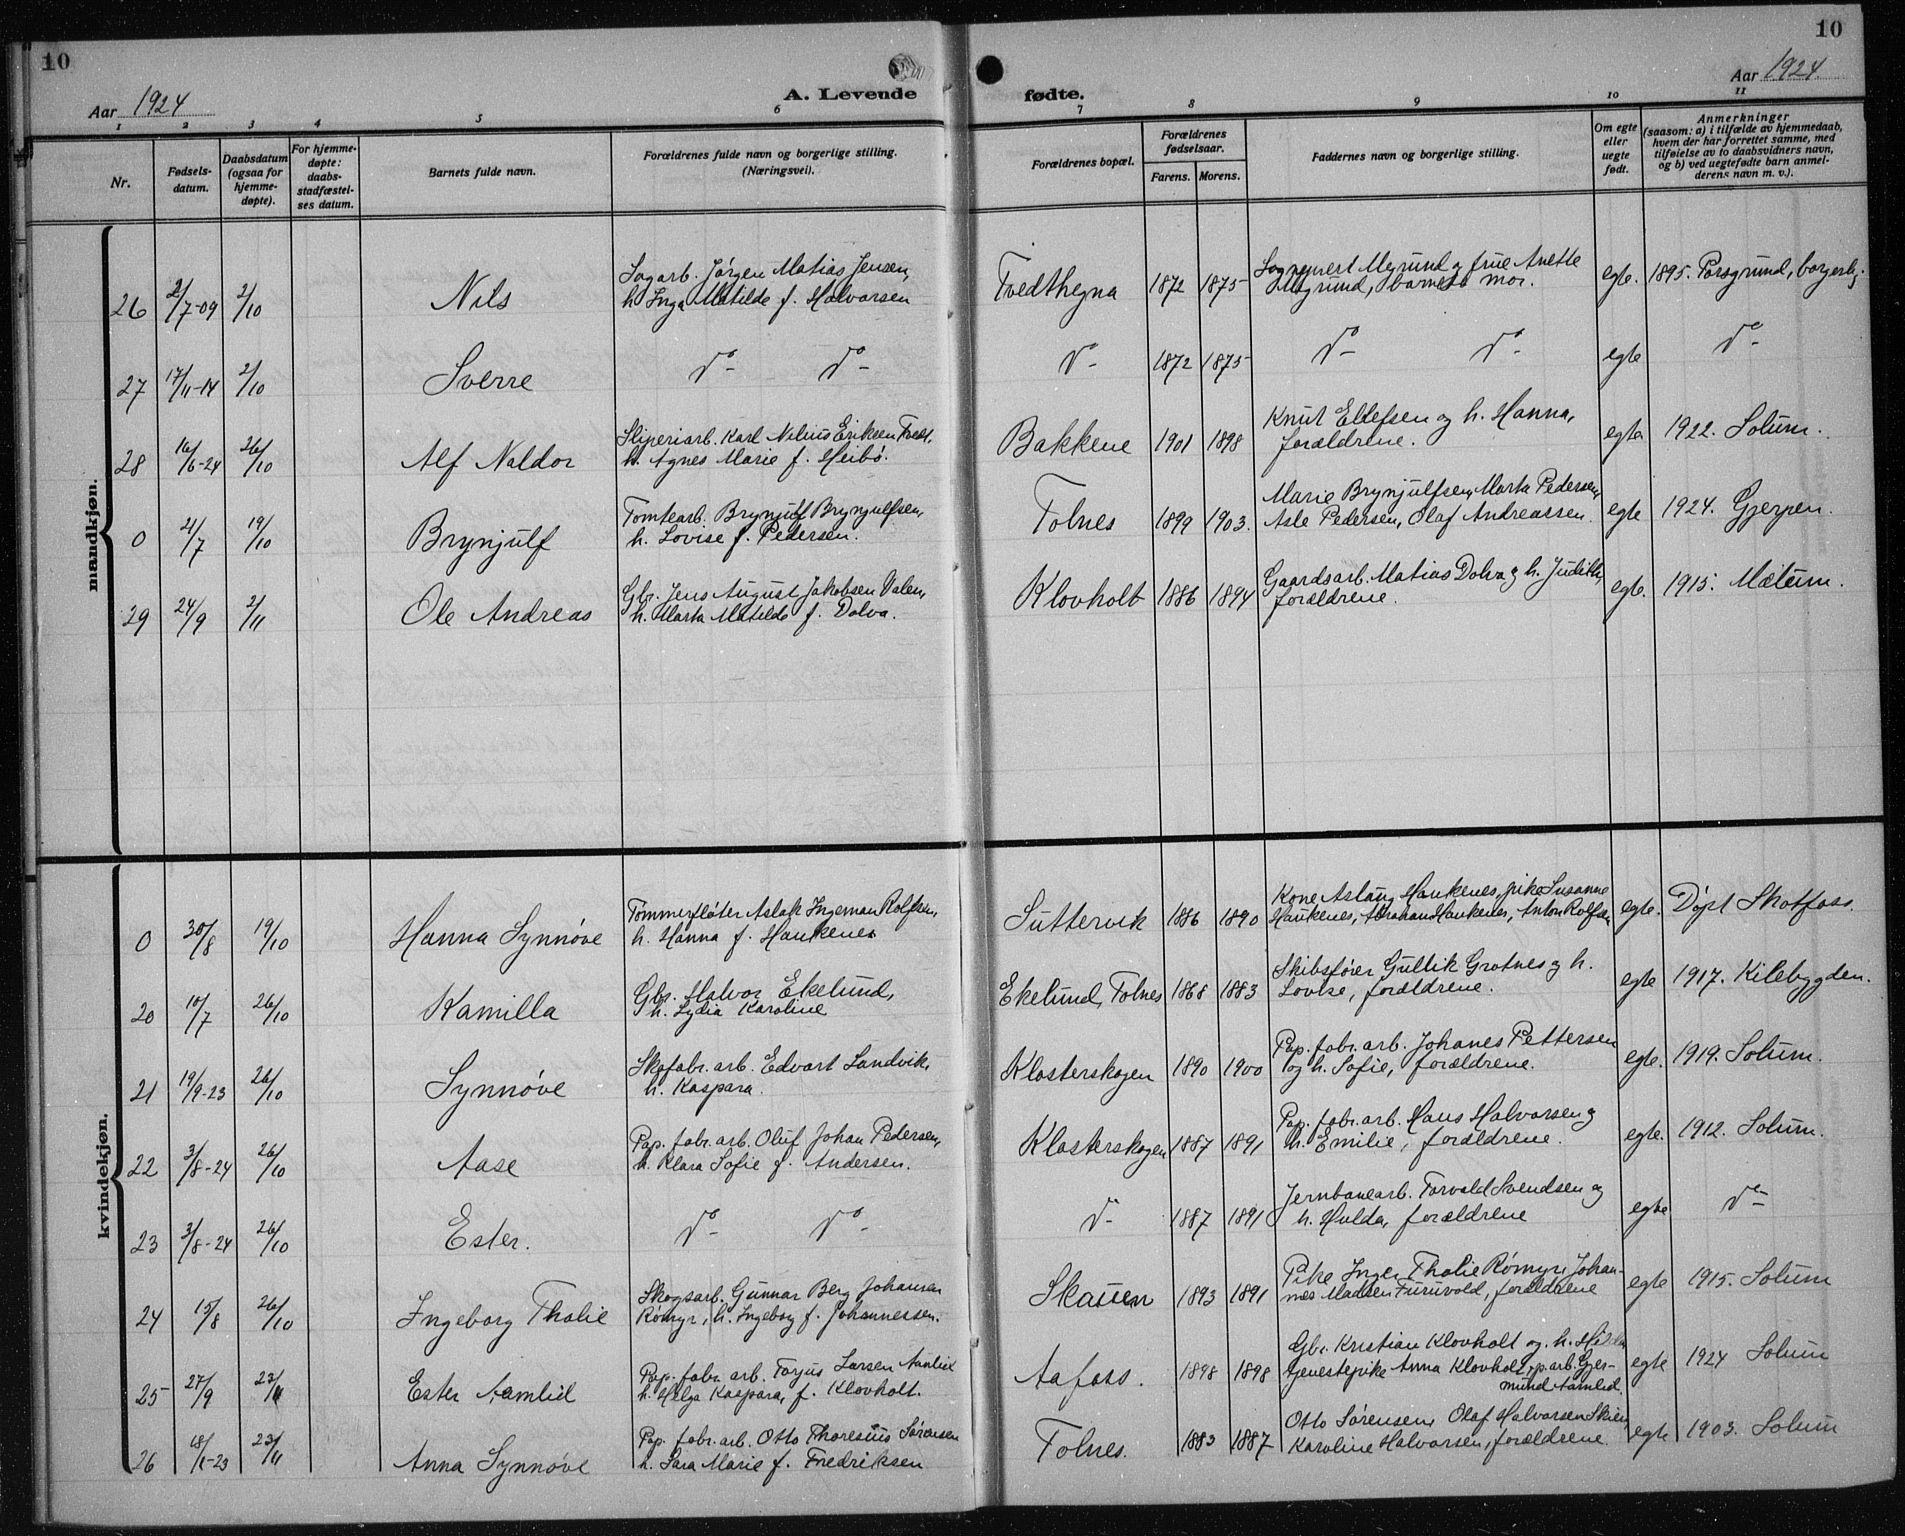 10
10
Aar 1924
A. Levende
fødte.
Aar 1924.
1 2 3 4 5 6 7 8 9 10 11
Nr.
Fødsels-
datum.
Daabsdatum
(ogsaa for
hjemme-
døpte).
For hjemme-
døpte:
daabs-
stadfæstel-
ses datum.
Barnets fulde navn.
Forældrenes fulde navn og borgerlige stilling.
(Næringsvei).
Forældrenes bopæl.
Forældrenes
fødselsaar.
Farens. Morens.
Faddernes navn og borgerlige stilling.
Om egte
eller
uegte
født.
Anmerkninger
(saasom: a) i tilfælde av hjemmedaab,
hvem der har forrettet samme, med
tilføielse av to daabsvidners navn,
og b) ved uegtefødte barn anmel-
derens navn m. v.).
mandkjøn.
26 2/7-09 2/10 Nils
Sagarb. Jørgen Matias Jensen,
h. Inga Matilde f. Halvorsen
Tvedthegna 1872 1875
Myrund og frue Anette
Myrund, barnets mor.
egte. 1895. Porsgrund, borgerlig.
27 17/11-14 2/10 Sverre do- do- do- 1872 1875 do- do- egte do-
28 16/6-24 26/10 Alf Naldor
Sliperiarb. Karl Nilius Eriksen Tvedt,
h. Agnes Marie f. Meibø.
Bakkene 1901 1898
Knut Ellefsen og h. Hanna,
forældrene.
egte 1922. Solum.
0 21/7 19/10 Brynjulf
Tomtearb. Brynjulf Brynjulfsen,
h. Lovise f. Pedersen.
Tolnes 1899 1903.
Marie Brynjulfsen, Marta Pedersen,
Asle Pedersen, Olaf Andreassen.
egte 1924. Gjerpen.
29 24/9 2/11 Ole Andreas
Gbr. Jens August Jakobsen Valen,
h. Marta Matilde f. Dolva.
Klovholt 1886 1894
Gaardsarb. Matias Dolva og h. Judith,
forældrene.
egte. 1915. Mælum.
kvindekjøn.
0 30/8 19/10 Hanna Synnøve
Tømmerfløter Aslak Ingeman Rolfsen,
h. Hanna f. Haukenes
Suttervik 1886 1890
Kone Aslaug Haukenes, pike Susanne
Haukenes, Abraham Haukenes, Anton Rolfsen
egte. Døpt Skotfoss.
20 10/7 26/10 Kamilla
Gbr. Halvor Ekelund,
h. Lydia Karoline
Ekelund, Tolnes 1868 1883
Skibsfører Gullik Grotnes og h.
Lovise, forældrene.
egte 1917. Kilebygden.
21 19/9-23 26/10 Synnøve
Skofabr. arb. Edvart Sandvik,
h. Kaspara.
Klosterskogen 1890 1900
Pap. fabr. arb. Johanes Pettersen
og h. Sofie, forældrene.
egte. 1919. Solum.
22 3/8-24 26/10 Aase
Pap. fabr. arb. Oluf Johan Pedersen,
h. Klara Sofie f. Andersen.
Klosterskogen 1887 1891
Pap. fabr. arb. Hans Halvorsen og
h. Emilie, forældrene.
egte. 1912. Solum.
23 3/8-24 26/10 Ester. do- do- do- 1887 1891
Jernbanearb. Torvald Svendsen og
h. Hulda, forældrene
egte do-
24 15/8 26/10 Ingeborg Thalie
Skogsarb. Gunnar Berg Johansen
Rømyr, h. Ingeborg f. Johannessen.
Skauen 1893 1891
Pike Inger Thalie Rømyr, Johan-
nes Madsen Furuvold, forældrene
egte 1915. Solum
25 27/9 23/11 Ester Aamlid
Pap. fabr. arb. Torjus Larsen Aamlid
h. Helga Kaspara, f. Klovholt.
Aafoss. 1898 1898
Gbr. Kristian Klovholt og h. Hilda
tjenestepike Anna Klovholt, p. arb. Gjer-
mund Aamlid.
egte 1924 Solum
26 18/1-23 23/11 Anna Synnøve
Pap. fabr. arb. Otto Thoresius Sørensen
h. Sara Marie f. Fredriksen
Tolnes. 1883 1887
Otto Sørensen, Olaf Halvorsen Skien,
Karoline Halvorsen, forældrene.
egte 1903. Solum